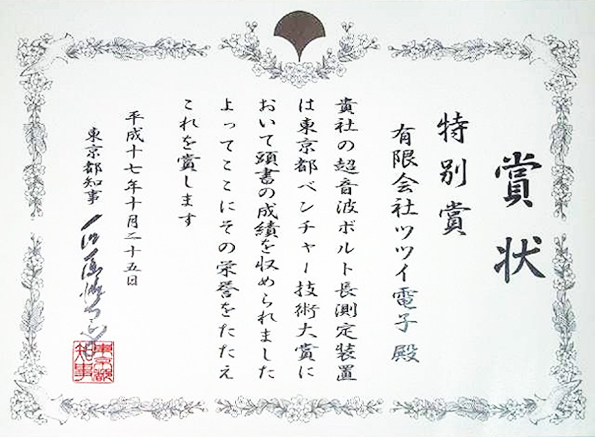 賞状
特別賞
有限会社ツツイ電子殿
貴社の超音波ボルト長測定装置
は東京都ベンチャー技術大賞に
おいて頭書の成績を収められました
よってここにその栄誉をたたえ
これを賞します
平成十七年十月二十五日
東京都知事
東京都
知事